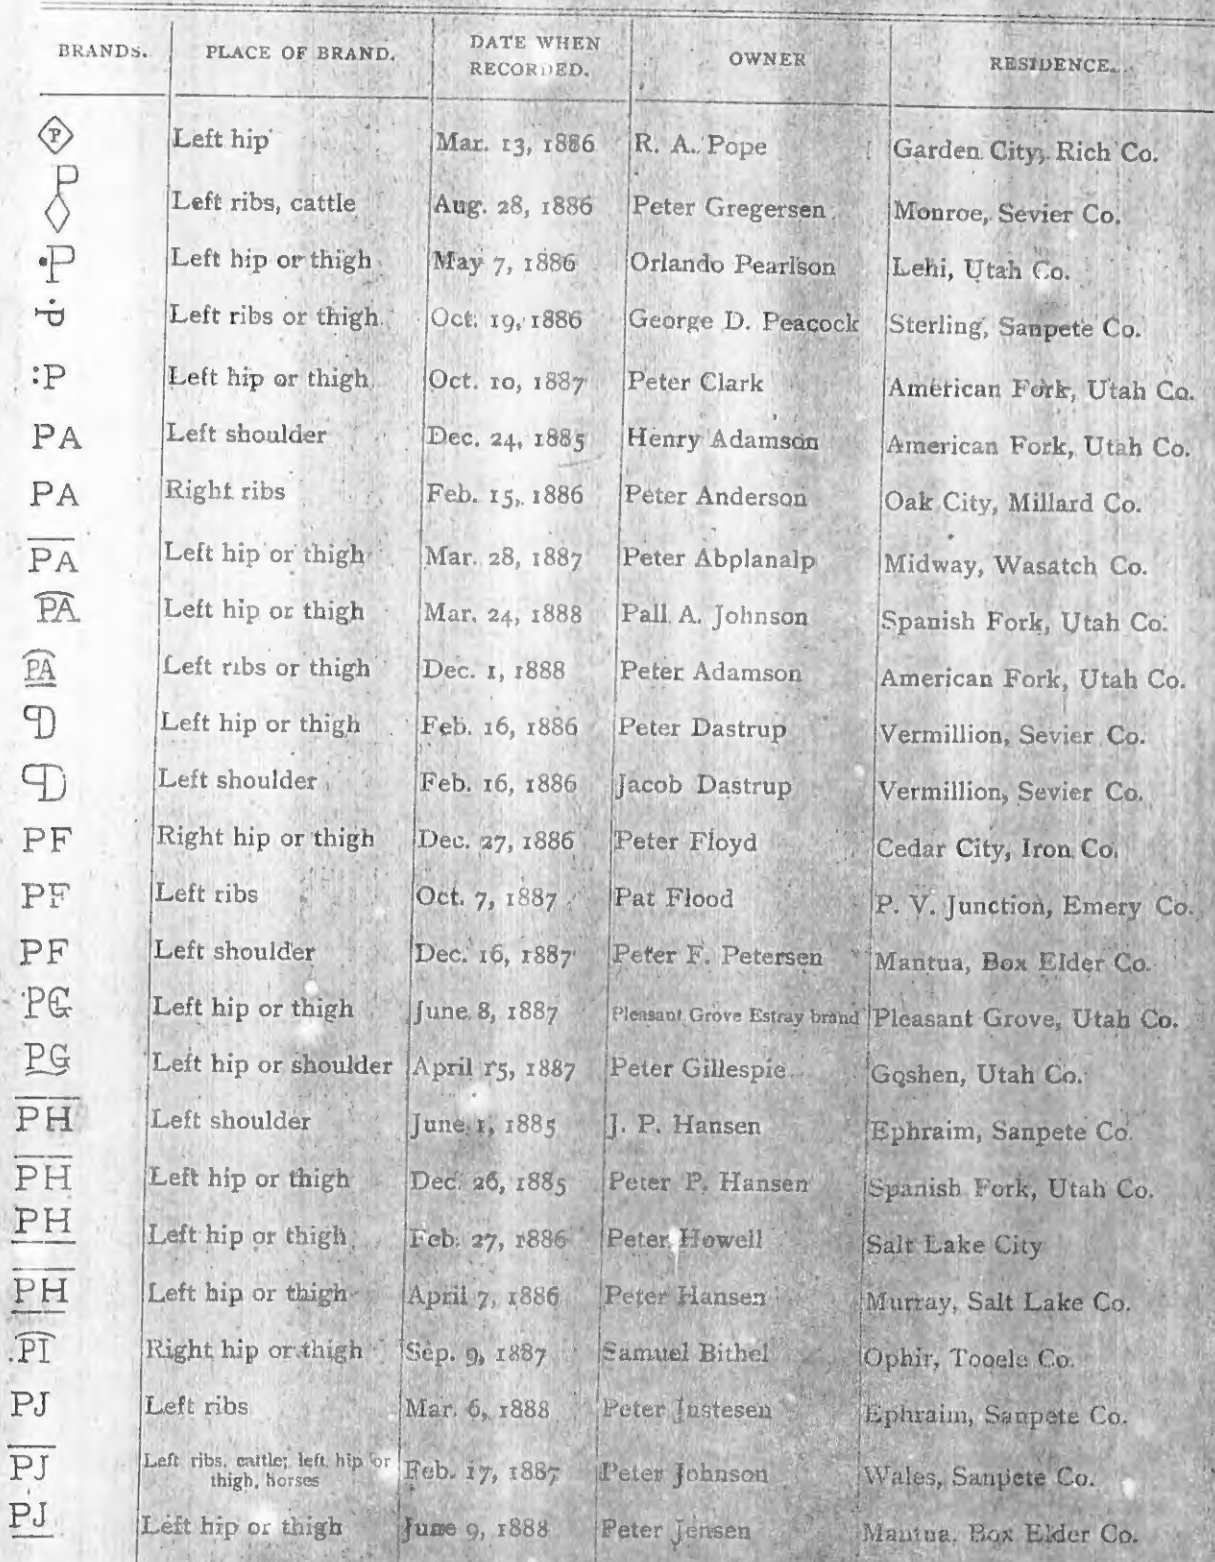 BRANDS. PLACE OF BRAND. DATE WHEN RECORDED. OWNER RESIDENCE.
P Left hip Mar. 13, 1886 R. A. Pope Garden City, Rich Co.
P Left ribs, cattle Aug. 28, 1886 Peter Gregersen Monroe, Sevier Co.
•P Left hip or thigh May 7, 1886 Orlando Pearlson Lehi, Utah Co.
P Left ribs or thigh Oct. 19, 1886 George D. Peacock Sterling, Sanpete Co.
:P Left hip or thigh Oct. 10, 1887 Peter Clark American Fork, Utah Co.
PA Left shoulder Dec. 24, 1885 Henry Adamson American Fork, Utah Co.
PA Right ribs Feb. 15, 1886 Peter Anderson Oak City, Millard Co.
PA Left hip or thigh Mar. 28, 1887 Peter Abplanalp Midway, Wasatch Co.
PA Left hip or thigh Mar. 24, 1888 Pall A. Johnson Spanish Fork, Utah Co.
PA Left ribs or thigh Dec. 1, 1888 Peter Adamson American Fork, Utah Co.
PD Left hip or thigh Feb. 16, 1886 Peter Dastrup Vermillion, Sevier Co.
PD Left shoulder Feb. 16, 1886 Jacob Dastrup Vermillion, Sevier Co.
PF Right hip or thigh Dec. 27, 1886 Peter Floyd Cedar City, Iron Co.
PF Left ribs Oct. 7, 1887 Pat Flood P. V. Junction, Emery Co.
PF Left shoulder Dec. 16, 1887 Peter F. Petersen Mantua, Box Elder Co.
PG Left hip or thigh June 8, 1887 Pleasant Grove Estray brand Pleasant Grove, Utah Co.
PG Left hip or shoulder April 15, 1887 Peter Gillespie Goshen, Utah Co.
PH Left shoulder June 1, 1885 J. P. Hansen Ephraim, Sanpete Co.
PH Left hip or thigh Dec. 26, 1885 Peter P. Hansen Spanish Fork, Utah Co.
PH Left hip or thigh Feb. 27, 1886 Peter Howell Salt Lake City
PH Left hip or thigh April 7, 1886 Peter Hansen Murray, Salt Lake Co.
PI Right hip or thigh Sep. 9, 1887 Samuel Bithel Ophir, Tooele Co.
PJ Left ribs Mar. 6, 1888 Peter Justesen Ephraim, Sanpete Co.
PJ Left ribs, cattle; left hip or thigh, horses Feb. 17, 1887 Peter Johnson Wales, Sanpete Co.
PJ Left hip or thigh June 9, 1888 Peter Jensen Mantua, Box Elder Co.